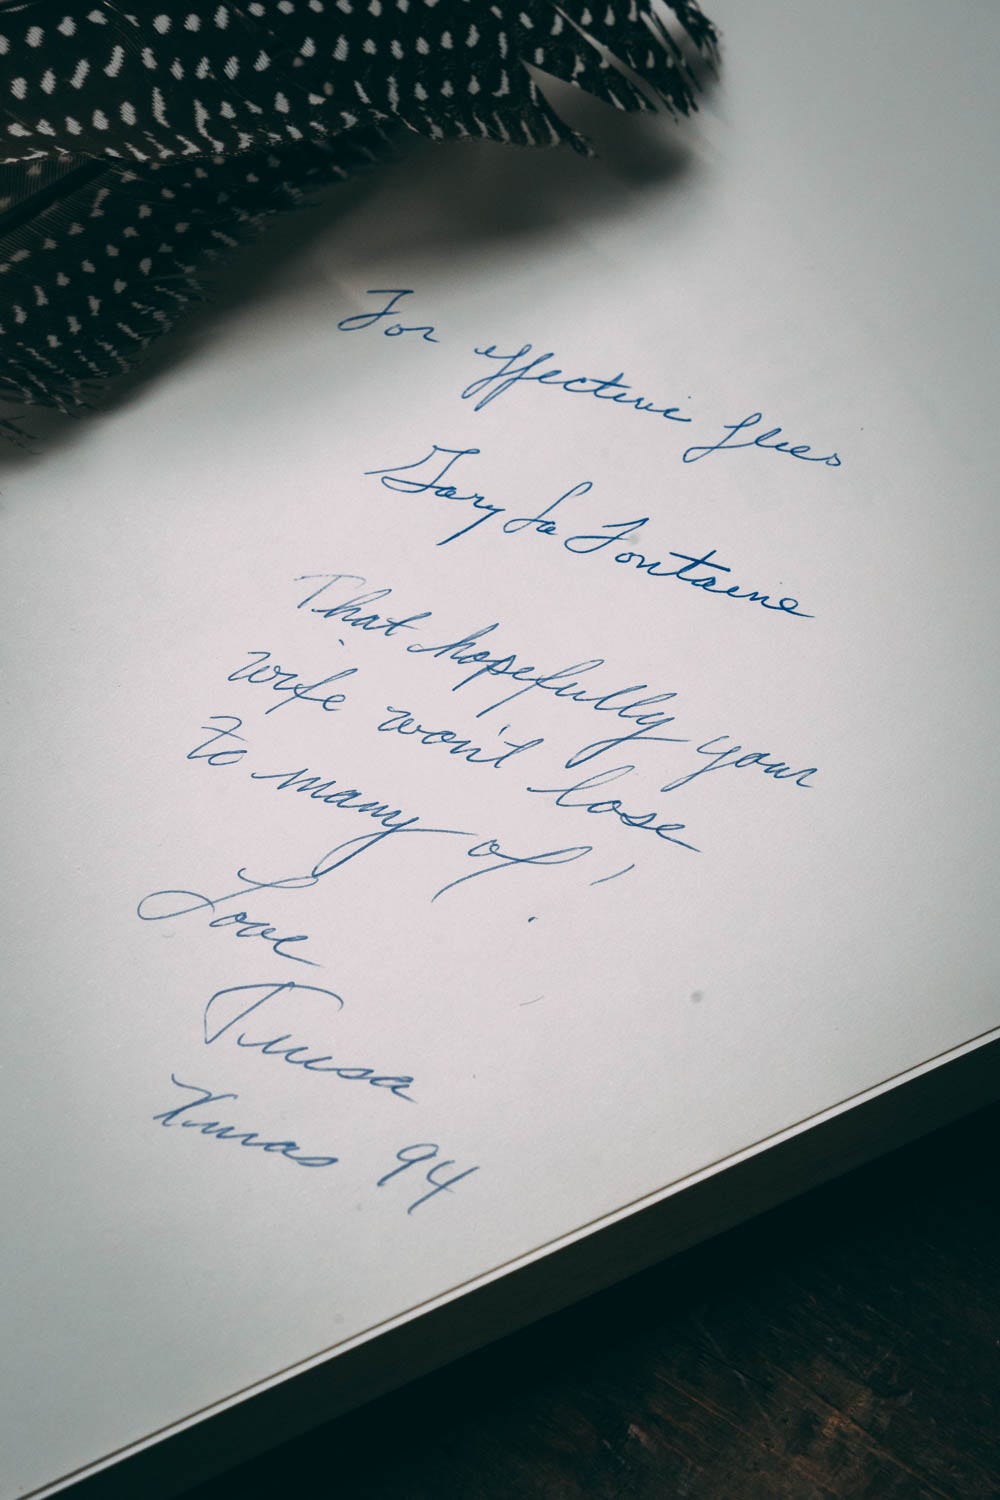 For effective flies
Gary La Fontaine
That hopefully your
wife won't lose
to many of!
Love
Teresa
Xmas 94